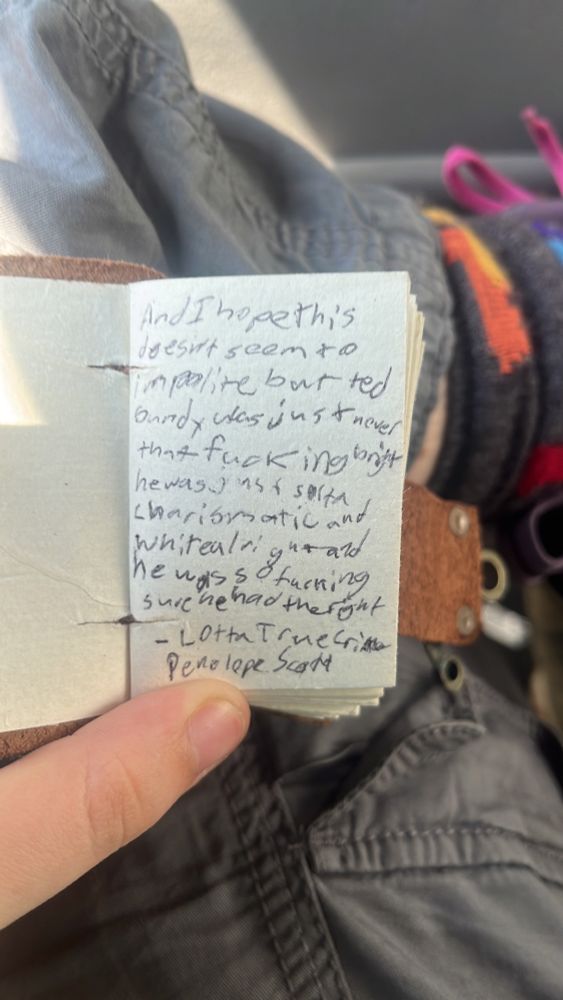 And I hope this
doesn't seem to
impolite but ted
bundy was just never
that fucking bright
he was just sorta
charismatic and
white alright and
he was so fucking
sure he had the right
- Lotta True Crime
Penelope Scott